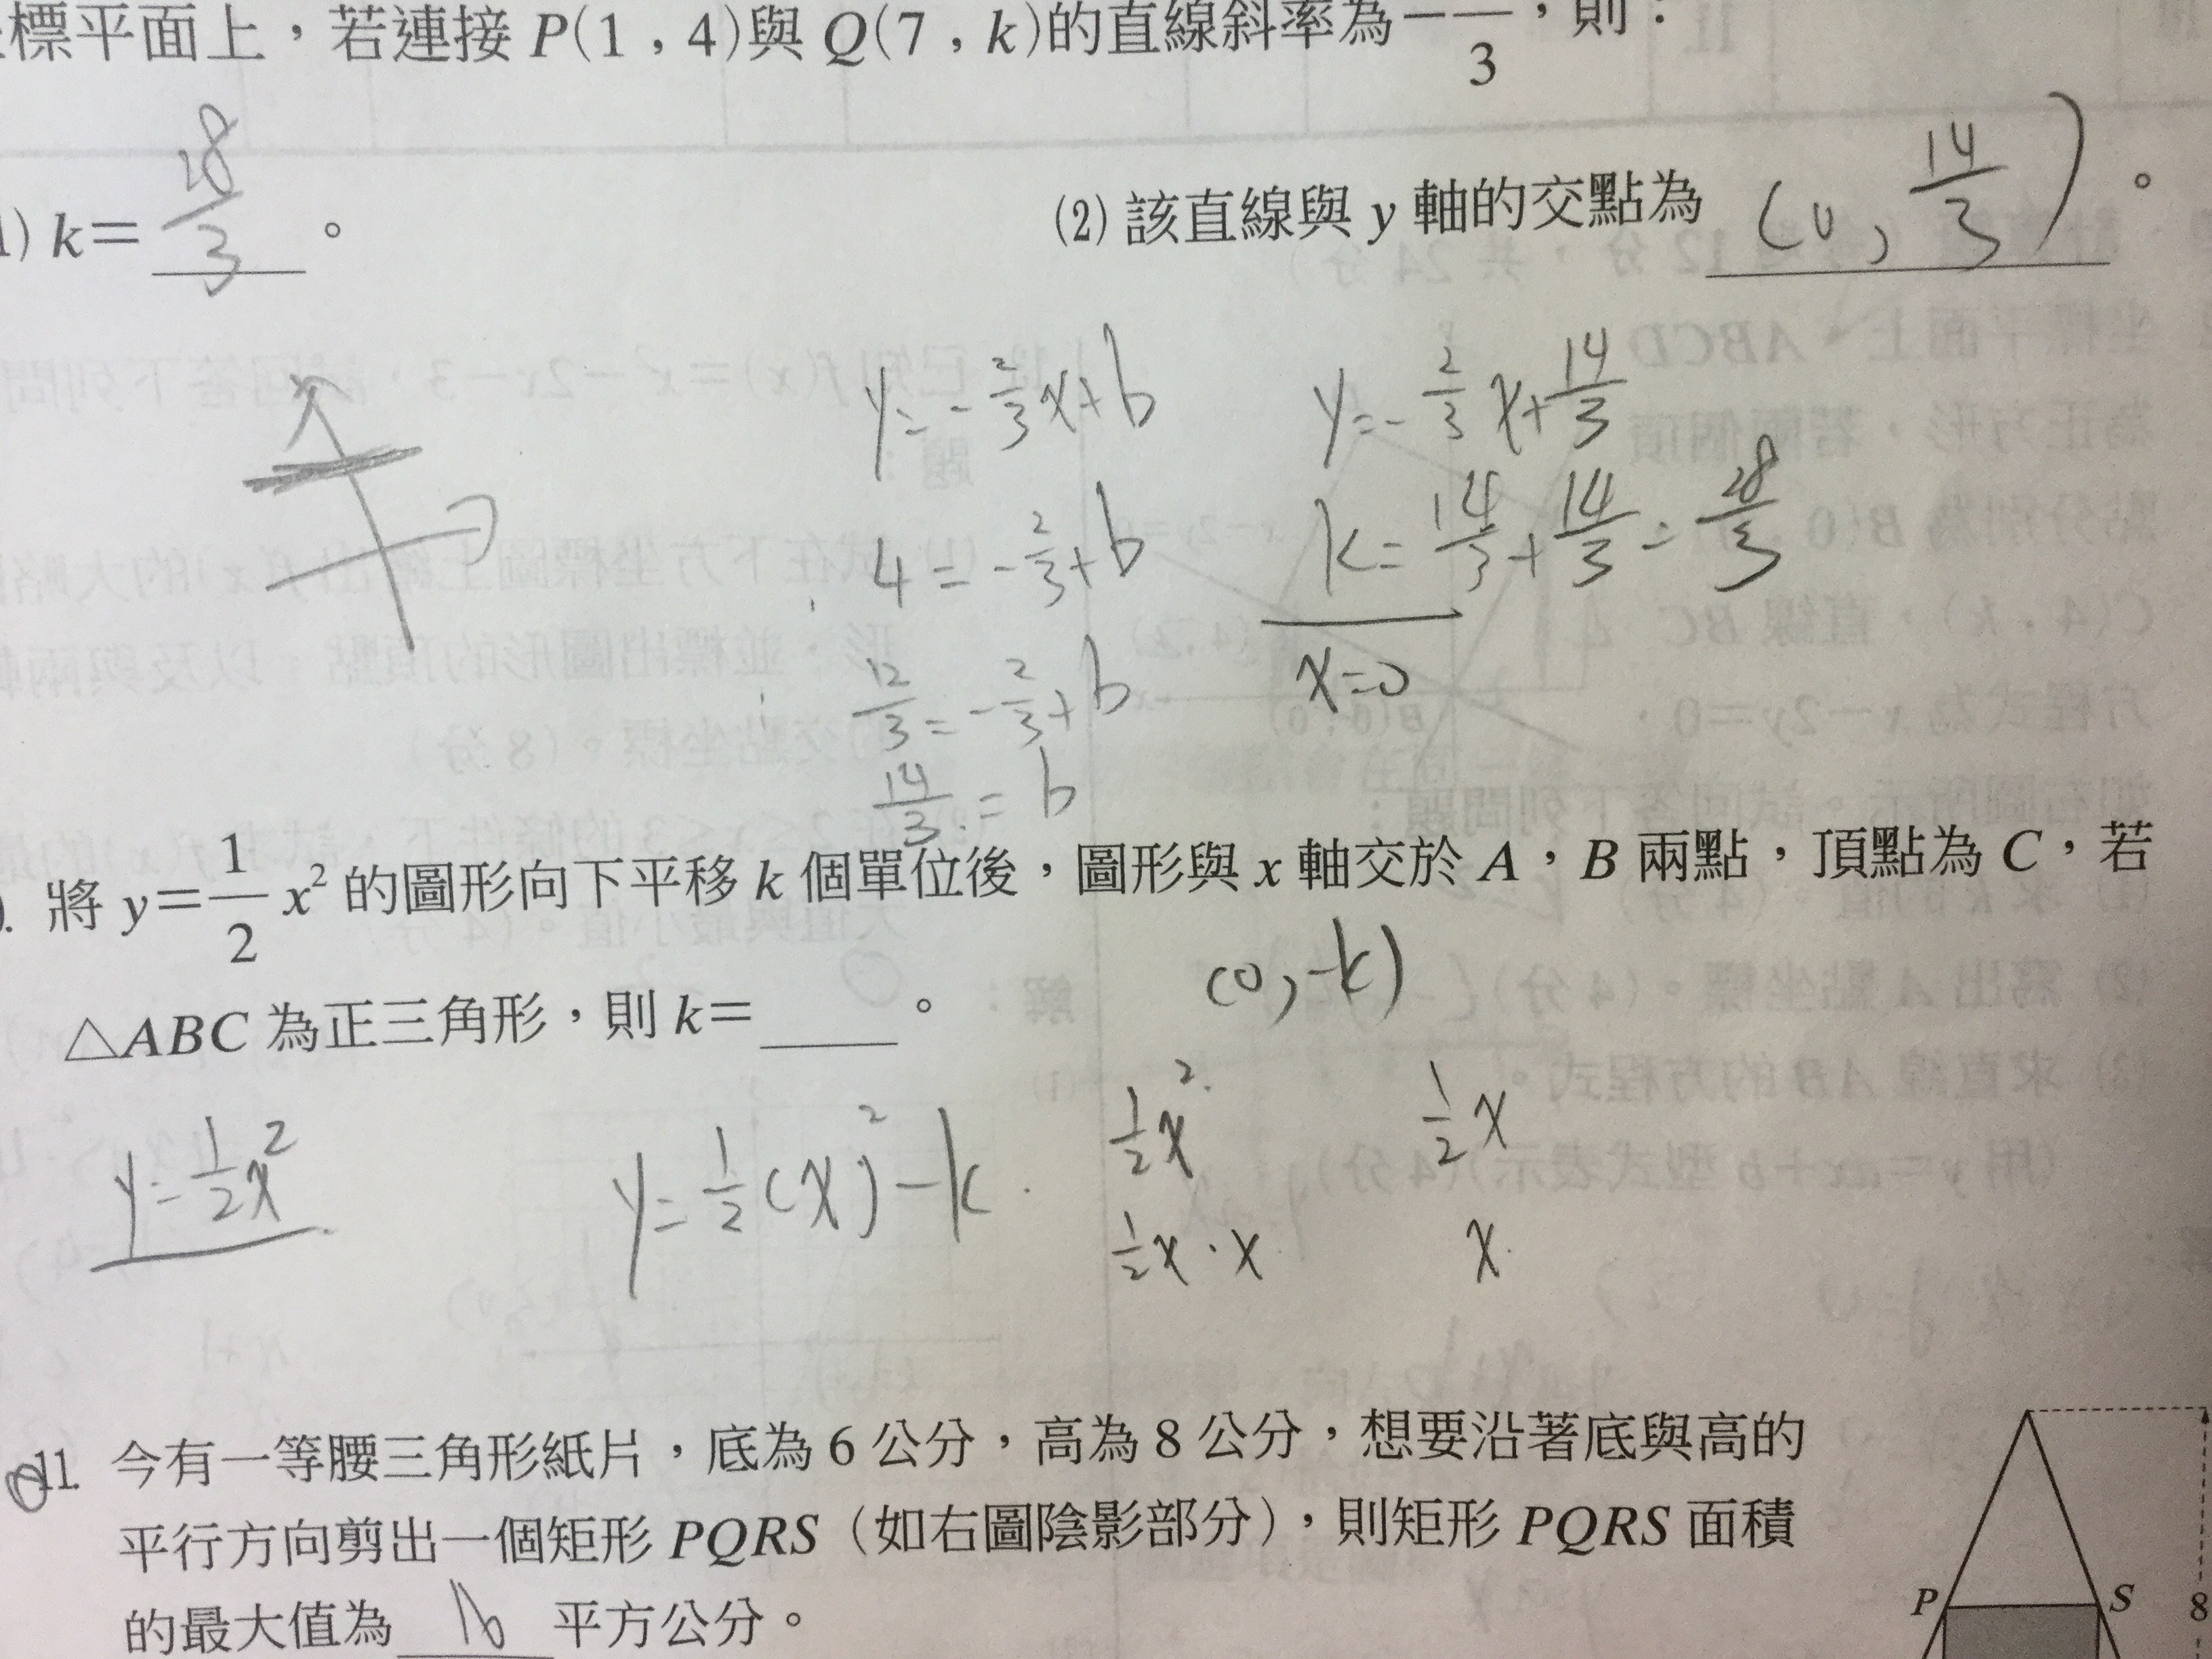 標平面上，若連接 P(1，4)與 Q(7，k)的直線斜率為－—/3，則：
1) k＝ 28/3 。
(2) 該直線與 y 軸的交點為 (0, 14/3) 。
y=-2/3x+b
y=-2/3x+14/3
4=-2/3+b
k=14/3+14/3=28/3
12/3=-2/3+b
x=0
14/3=b
. 將 y＝1/2 x² 的圖形向下平移 k 個單位後，圖形與 x 軸交於 A，B 兩點，頂點為 C，若
(0,-k)
△ABC 為正三角形，則 k＝____。
y=1/2x²
y=1/2(x)²-k
1/2x²
1/2x
1/2x·x
x
11. 今有一等腰三角形紙片，底為 6 公分，高為 8 公分，想要沿著底與高的
平行方向剪出一個矩形 PQRS（如右圖陰影部分），則矩形 PQRS 面積
的最大值為 平方公分。
P
S
8